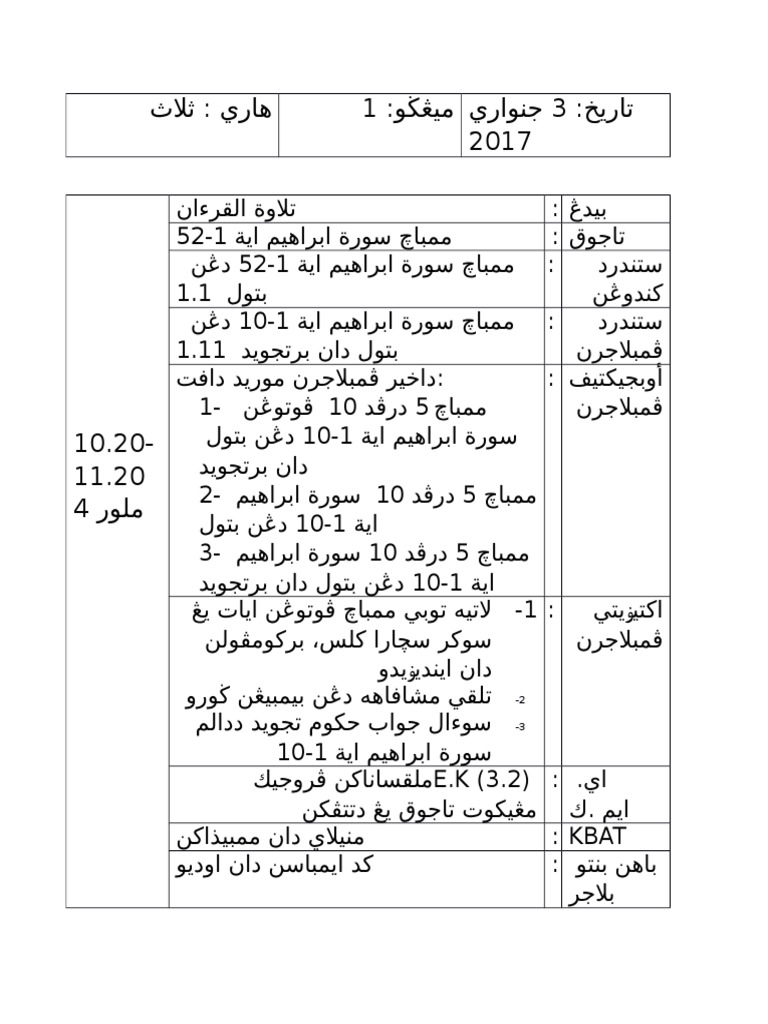 تاريخ: 3 جنواري
2017
ميڠڬو: 1
هاري : ثلاث
10.20-
11.20
4 ملور
بيدڠ : تلاوة القرءان
تاجوق : ممباچ سورة ابراهيم اية 1-52
ستندرد : ممباچ سورة ابراهيم اية 1-52 دڠن
كندوڠن بتول 1.1
ستندرد : ممباچ سورة ابراهيم اية 1-10 دڠن
ڤمبلاجرن بتول دان برتجويد 1.11
أوبجيكتيف : داخير ڤمبلاجرن موريد دافت:
ڤمبلاجرن 1- ممباچ 5 درڤد 10 ڤوتوڠن
سورة ابراهيم اية 1-10 دڠن بتول
دان برتجويد
2- ممباچ 5 درڤد 10 سورة ابراهيم
اية 1-10 دڠن بتول
3- ممباچ 5 درڤد 10 سورة ابراهيم
اية 1-10 دڠن بتول دان برتجويد
اكتيۏيتي : 1- لاتيه توبي ممباچ ڤوتوڠن ايات يڠ
ڤمبلاجرن سوكر سچارا كلس، بركومڤولن
دان اينديۏيدو
2- تلقي مشافاهه دڠن بيمبيڠن ڬورو
3- سوءال جواب حكوم تجويد ددالم
سورة ابراهيم اية 1-10
اي. : E.K (3.2)ملقساناكن ڤروجيك
ايم .ك مڠيكوت تاجوق يڠ دتتڤكن
KBAT : منيلاي دان ممبيذاكن
باهن بنتو : كد ايمباسن دان اوديو
بلاجر